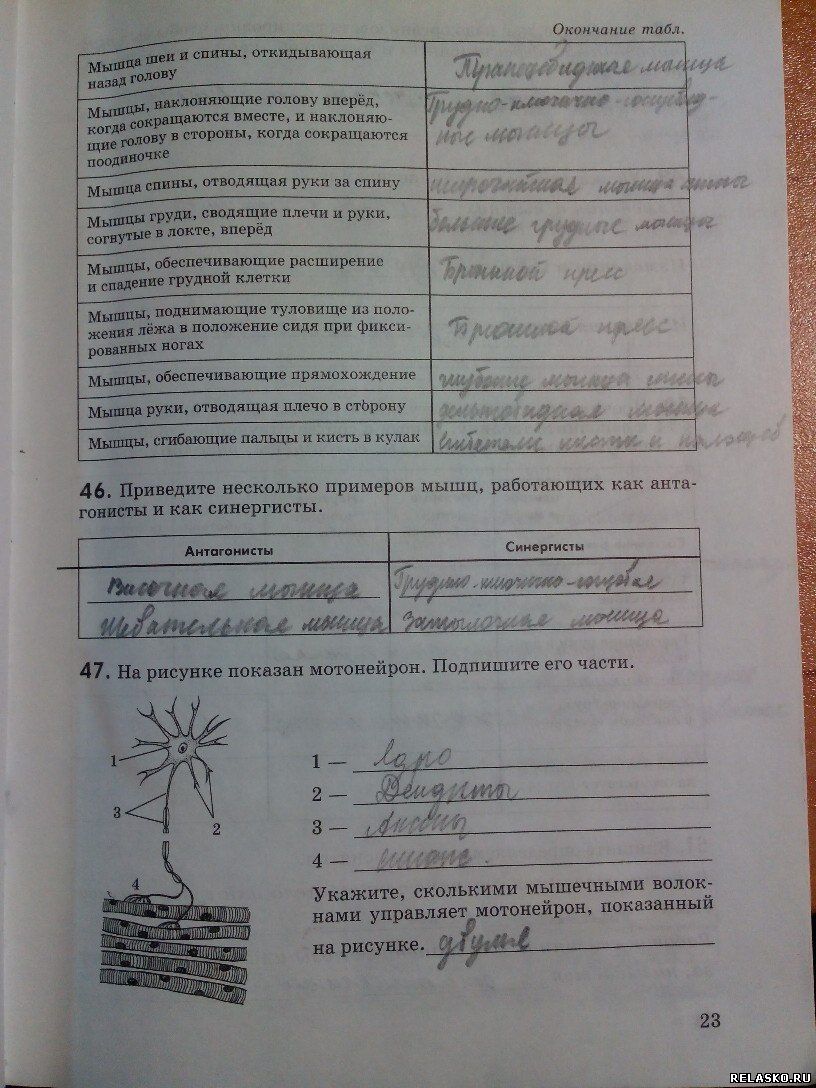 Окончание табл.
Мышца шеи и спины, откидывающая
назад голову
Трапециевидная мышца
Мышцы, наклоняющие голову вперёд,
когда сокращаются вместе, и наклоняю-
щие голову в стороны, когда сокращаются
поодиночке
Грудино-ключично-сосцевид-
ные мышцы
Мышца спины, отводящая руки за спину
широчайшая мышца спины
Мышцы груди, сводящие плечи и руки,
согнутые в локте, вперёд
большие грудные мышцы
Мышцы, обеспечивающие расширение
и спадение грудной клетки
Брюшной пресс
Мышцы, поднимающие туловище из поло-
жения лёжа в положение сидя при фикси-
рованных ногах
Брюшной пресс
Мышцы, обеспечивающие прямохождение
глубокие мышцы спины
Мышца руки, отводящая плечо в сторону
дельтовидная мышца
Мышцы, сгибающие пальцы и кисть в кулак
сгибатели кисти и пальцев
46. Приведите несколько примеров мышц, работающих как анта-
гонисты и как синергисты.
Антагонисты
Синергисты
Височная мышца
Грудино-ключично-
Жевательная мышца
Затылочная мышца
47. На рисунке показан мотонейрон. Подпишите его части.
1
3
2
4
1 — Ядро
2 — Дендриты
3 — Аксоны
4 —
Укажите, сколькими мышечными волок-
нами управляет мотонейрон, показанный
на рисунке. двумя
23
RELASKO.RU